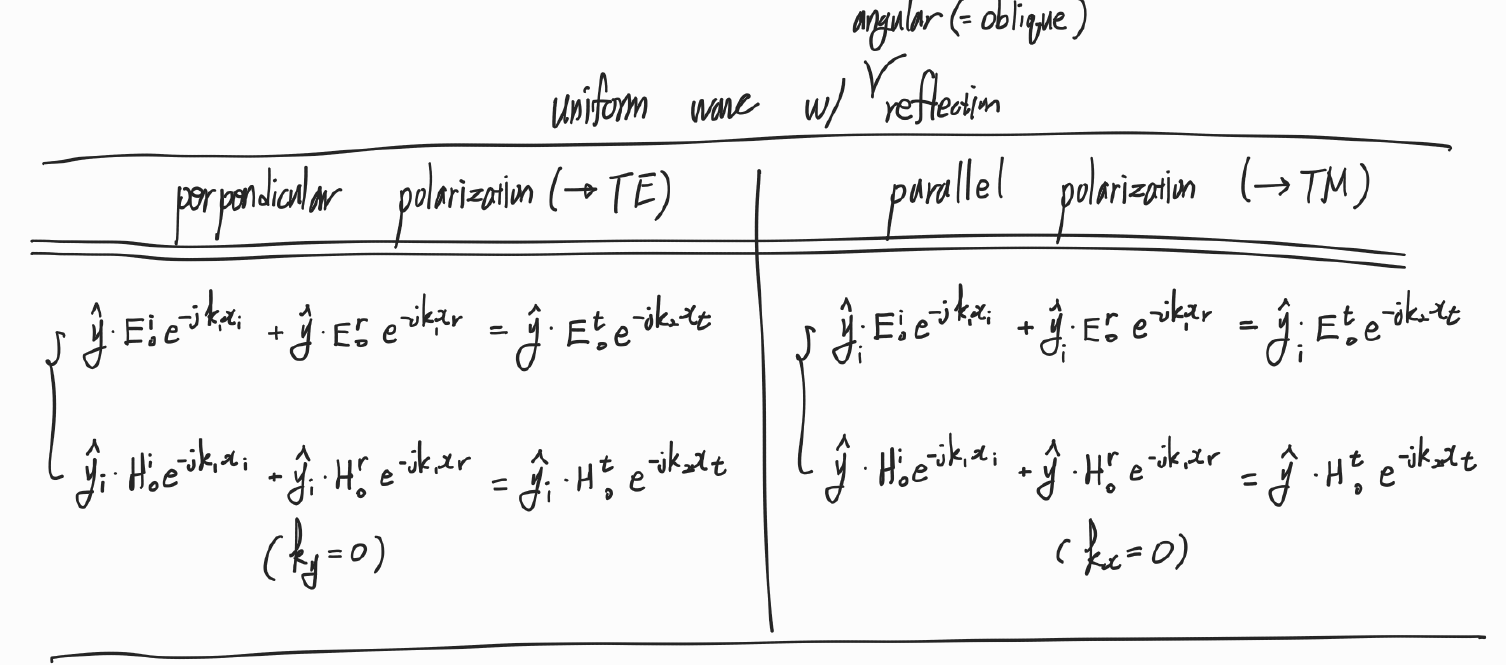 angular (= oblique)
uniform wave w/ √ reflection
perpendicular polarization (→ TE)
parallel polarization (→ TM)
ŷ · E₀ⁱ e^{-jk₁x_i} + ŷ · E₀ʳ e^{-jk₁x_r} = ŷ · E₀ᵗ e^{-jk₂x_t}
ŷ_i · H₀ⁱ e^{-jk₁x_i} + ŷ_i · H₀ʳ e^{-jk₁x_r} = ŷ_i · H₀ᵗ e^{-jk₂x_t}
(k_y = 0)
ŷ_i · E₀ⁱ e^{-jk₁x_i} + ŷ_i · E₀ʳ e^{-jk₁x_r} = ŷ_i · E₀ᵗ e^{-jk₂x_t}
ŷ · H₀ⁱ e^{-jk₁x_i} + ŷ · H₀ʳ e^{-jk₁x_r} = ŷ · H₀ᵗ e^{-jk₂x_t}
(k_x = 0)